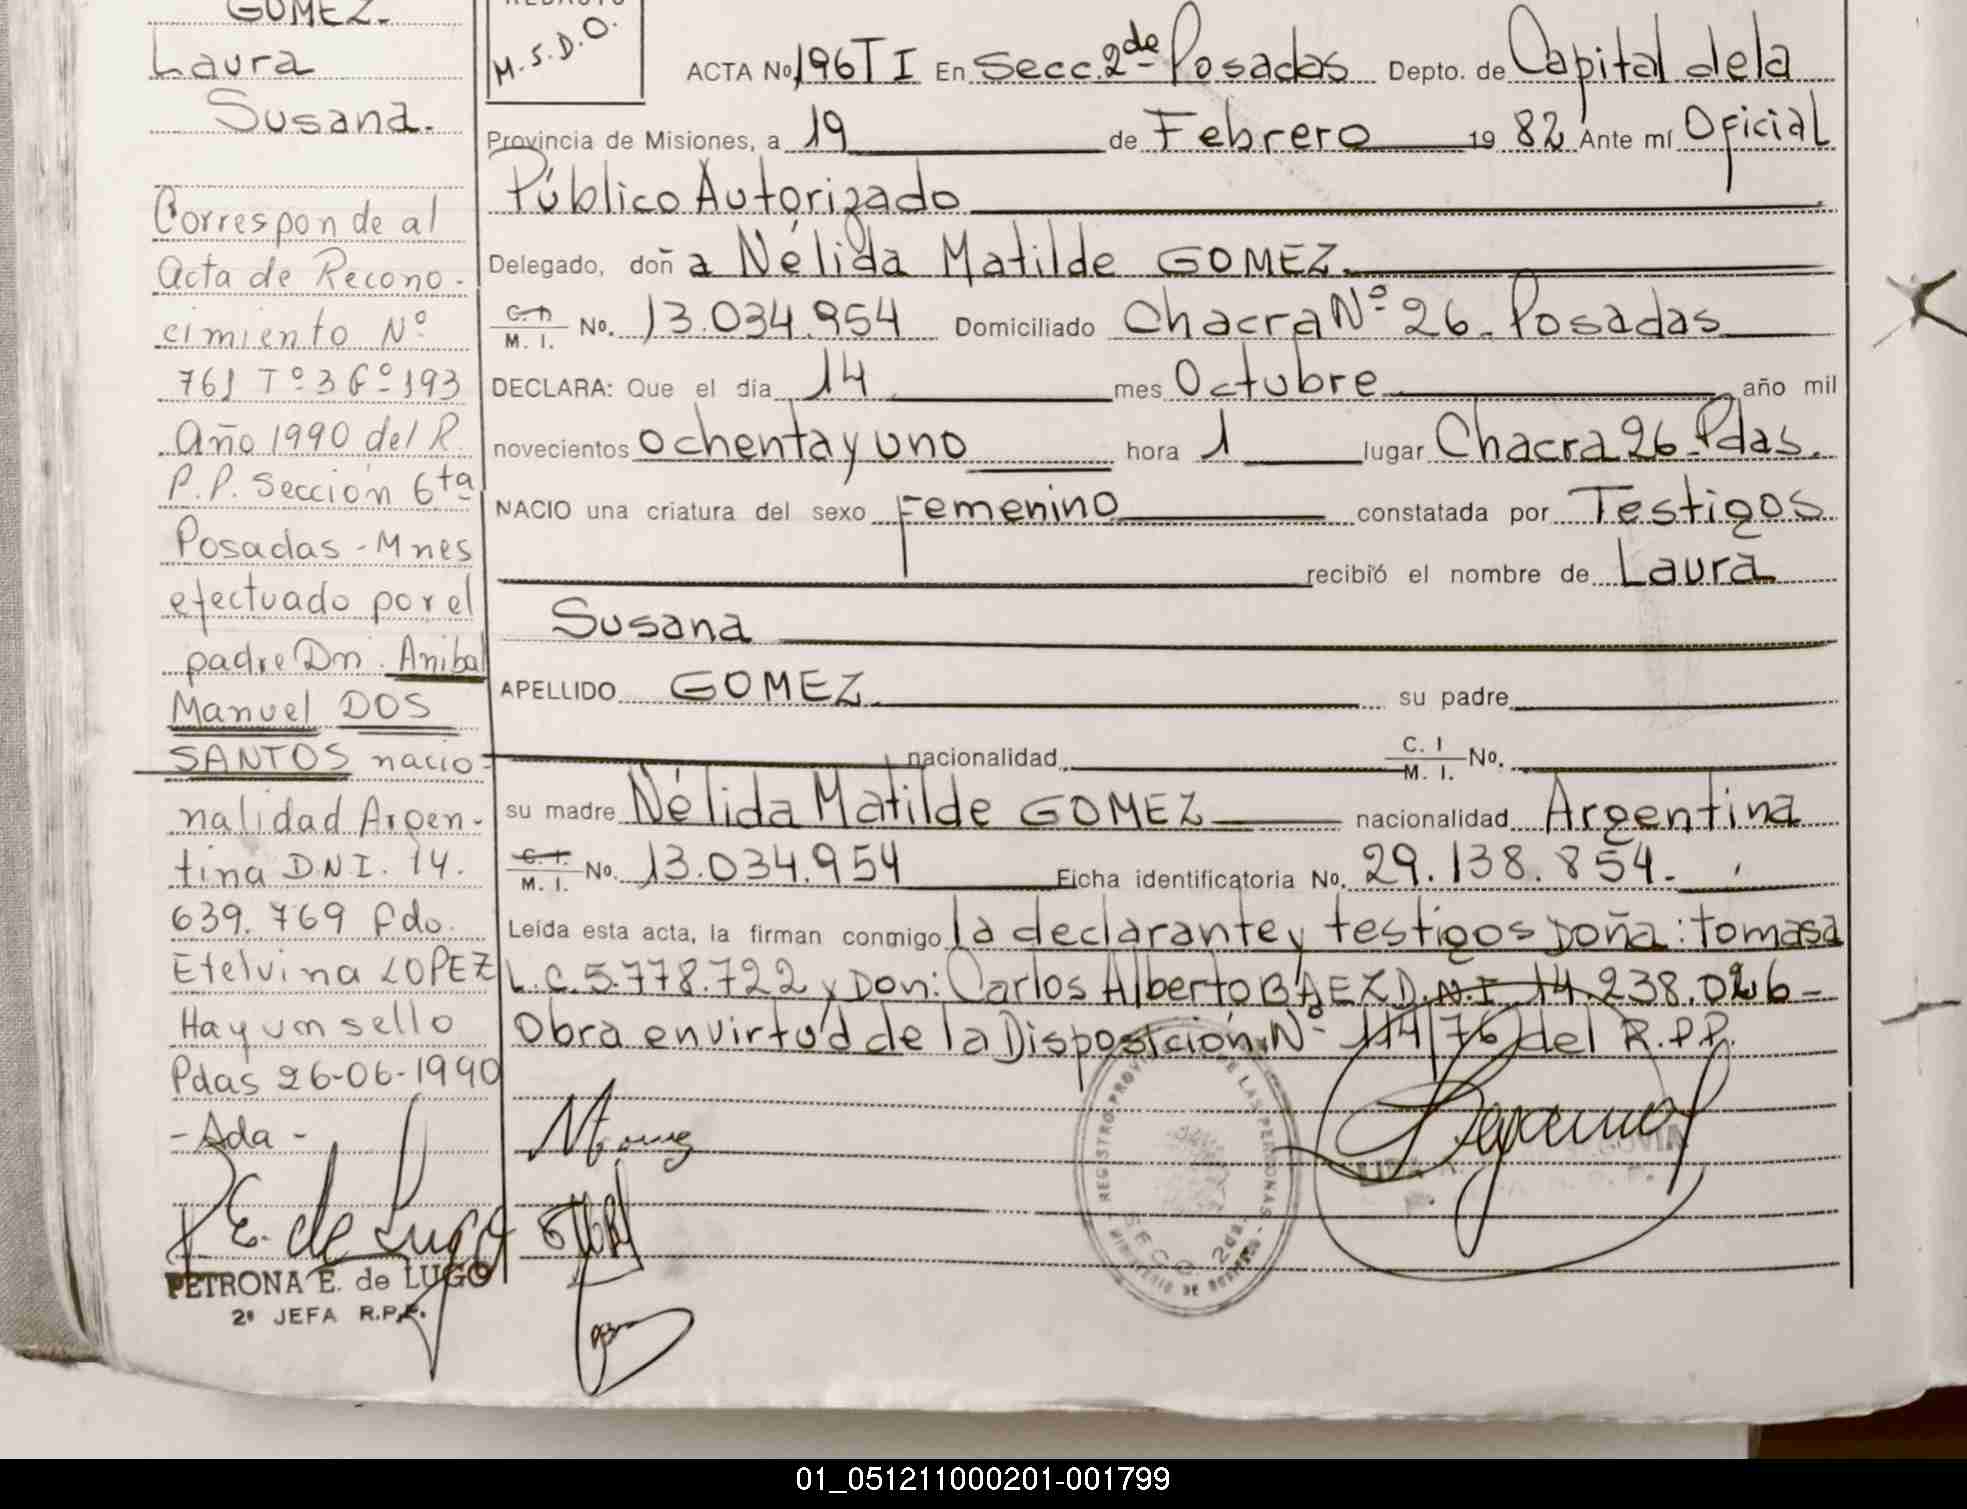 GOMEZ.
Laura
Susana.
Corresponde al
acta de Recono-
cimiento Nº
761 Tº 3 Fº 193
Año 1990 del R.
P.P. Sección 6ta
Posadas - Mnes
efectuado por el
padre Dn. Anibal
Manuel DOS
SANTOS nacio-
nalidad Argen-
tina D.N.I. 14.
639.769 fdo.
Etelvina LOPEZ
Hay un sello
Pdas 26-06-1990
- Ada -
P E. de Lugo
PETRONA E. de LUGO
2ª JEFA R.P.P.
REDACTO
M.S.D.O.
ACTA No 196 T I En Secc. 2de Posadas Depto. de Capital de la
Provincia de Misiones, a 19 de Febrero 19 82 Ante mí Oficial
Público Autorizado
Delegado, doña Nélida Matilde GOMEZ.
C. I. M. I. No. 13.034.954 Domiciliado Chacra Nº 26. Posadas
DECLARA: Que el día 14 mes Octubre año mil
novecientos ochenta y uno hora 1 lugar Chacra 26 - Pdas.
NACIO una criatura del sexo Femenino constatada por Testigos
recibió el nombre de Laura
Susana
APELLIDO GOMEZ su padre
nacionalidad C. I M. I. No.
su madre Nélida Matilde GOMEZ nacionalidad Argentina
C. I. M. I. No. 13.034.954 Ficha identificatoria No. 29.138.854.-
Leída esta acta, la firman conmigo la declarante y testigos Doña: tomasa
L.C. 5.778.722 y Don: Carlos Alberto BAEZ D.N.I. 14.238.026-
Obra en virtud de la Disposición Nº 114/76 del R.P.P.
REGISTRO PROV DE LAS PERSONAS
SECC. 2da.
MINISTERIO DE GOBIERNO
01_051211000201-001799